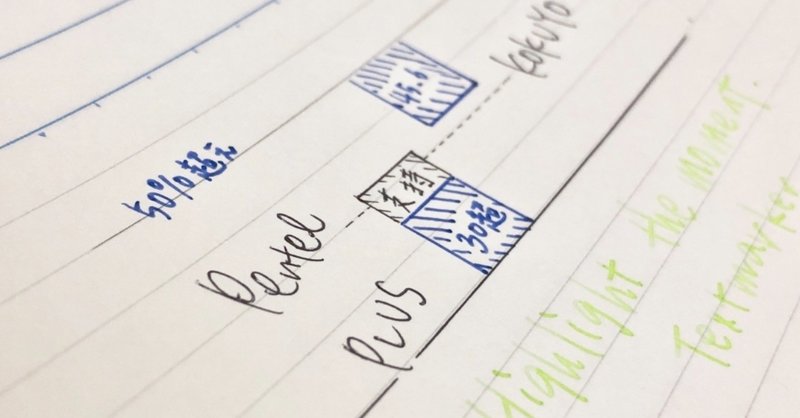 KOKUYO
45.6
50%超え
支持
30超
Pentel
PLUS
Highlight the moment.
Textmarker